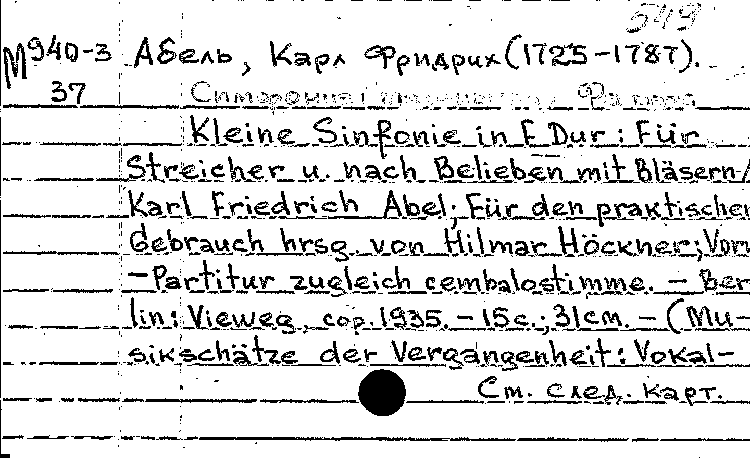 549
М940-3 Абель, Карл Фридрих (1725-1787).
37
Kleine Sinfonie in F Dur: Für
Streicher u. nach Belieben mit Bläsern/
Karl Friedrich Abel; Für den praktischen
Gebrauch hrsg. von Hilmar Höckner; Vor
-Partitur zugleich cembalostimme. - Ber
lin: Vieweg, cop. 1935. - 15 c.; 31 cm. - (Mu-
sikschätze der Vergangenheit: Vokal-
См. след. карт.